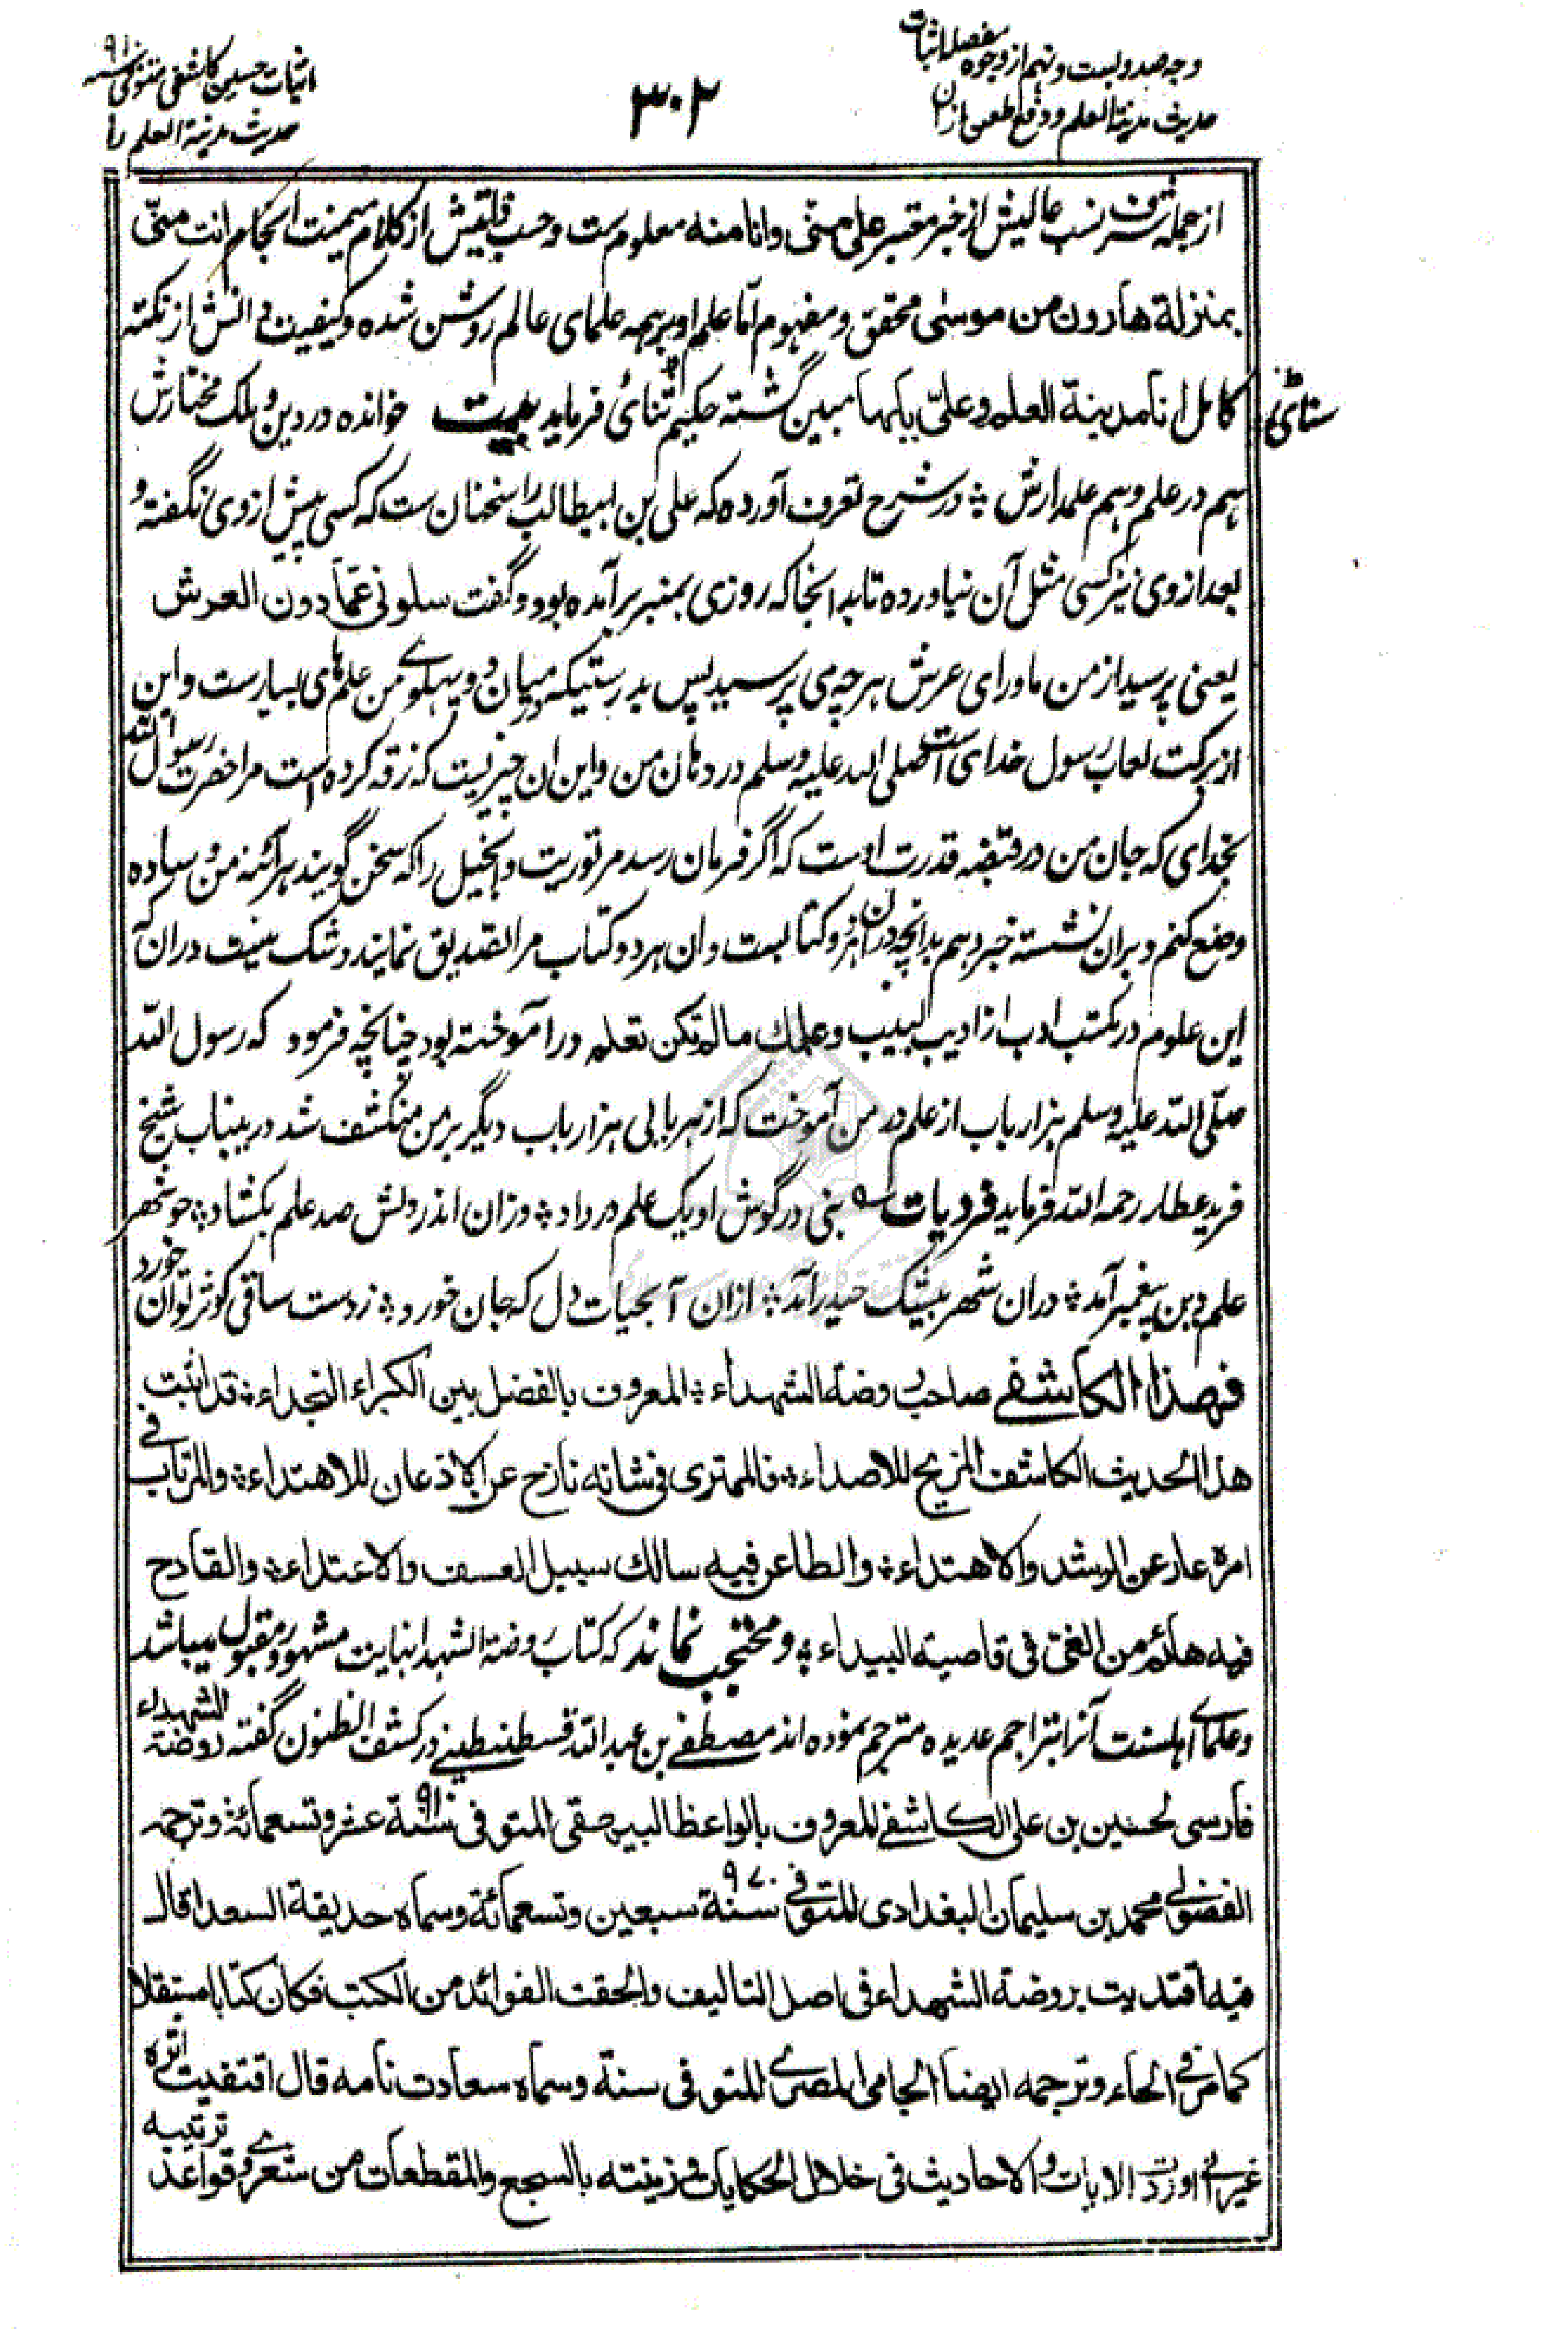 وجه صد و بست و نهم از وجوه مفصل اثبات
حدیث مدینة العلم و دفع طعن ازان
۳۰۲
اثبات حسین کاشفی متوفی سنه ۹۱۰
حدیث مدینة العلم را
از جمله شرف نسب عالیش از خبر معتبر علی منّی وانا منه معلوم ست و حسب قلتیش از کلام میمنت انجام انت منّی
بمنزلة هارون من موسی محقق و مفهوم امّا علم او بر همه علمای عالم روشن شده و کیفیت دانش از نکته
کامل انا مدینة العلم وعلیّ بابها مبین گشته حکیم ثنائی فرماید بیت خوانده در دین و ملک مختارش
سنائی
هم در علم و هم علمدارش ؞ در شرح تعرف آورده که علی بن ابیطالب را سخنان ست که کسی پیش از وی نگفته و
بعد از وی نیز کسی مثل آن نیاورده تا بدانجا که روزی بمنبر برآمده بود و گفت سلونی عمّا دون العرش
یعنی پرسید از من ماورای عرش هر چه می پرسید پس بدرستیکه میان دو پهلوے من علمهای بسیارست و این
از برکت لعاب رسول خدای است صلی الله علیه وسلم در دهان من و این آن چیزیست که زقه کرده است مرا حضرت رسول الله
بخدای که جان من در قبضه قدرت اوست که اگر فرمان رسد مر توریت و انجیل را که سخن گویند هر آئنه من وساده
وضع کنم و بران نشسته خبر دهم بدانچه دران هر دو کتابست و ان هر دو کتاب مرا تصدیق نمایند و شک نیست دران که
این علوم در مکتب ادب از ادیب لبیب وعلمك مالم تکن تعلم در آموخته بود چنانچه فرمود که رسول الله
صلّی الله علیه وسلم هزار باب از علم در من آموخت که از هر بابی هزار باب دیگر بر من منکشف شد درینباب شیخ
فرید عطار رحمه الله فرماید فردیات نبی در گوش او یک علم در داد ؞ وزان اندر دلش صد علم بکشاد ؞ چو شهر
علم دین پیغمبر آمد ؞ دران شهر بیشک حیدر آمد ؞ ازان آبحیات دل که جان خورد ؞ ز دست ساقی کوثر توان خورد
فهذا الکاشفے صاحب روضة الشهداء ؞ المعروف بالفضل بین الکبراء النجداء ؞ قد اثبت
هذا الحدیث الکاشف المزیح للاصداء ؞ فالممتری فی شانه نازح عن الاذعان للاهتداء ؞ والمرتاب فے
امره عار عن الرشد والاهتداء ؞ والطاعن فیه سالك سبیل العسف والاعتداء ؞ والقادح
فیه هائم من الغی فی قاصیة البیداء ؞ و محتجب نماند که کتاب روضة الشهدا بغایت مشهور و مقبول میباشد
و علمای اهلسنت آنرا بتراجم عدیده مترجم نموده اند مصطفے بن عبد الله قسطنطینے در کشف الظنون گفته روضة الشهداء
فارسی لحسین بن علی الکاشفے المعروف بالواعظ البیهقی المتوفی ۹۱۰ سنة عشر وتسعمائة وترجمه
الفضولی محمد بن سلیمان البغدادی المتوفی ۹۷۰ سنة سبعین وتسعمائة وسماه حدیقة السعدا قال
فیه اقتدیت بروضة الشهداء فی اصل التالیف والحقت الفوائد من الکتب فکان کتابا مستقلا
کما مر فی الحاء وترجمه ایضا الجامی المصری المتوفی سنة وسماه سعادت نامه قال اقتفیت اثره
غیر انی اوردت الایات والاحادیث فی خلال الحکایات وزینته بالسجع والمقطعات من شعری وقواعد ترتیبه